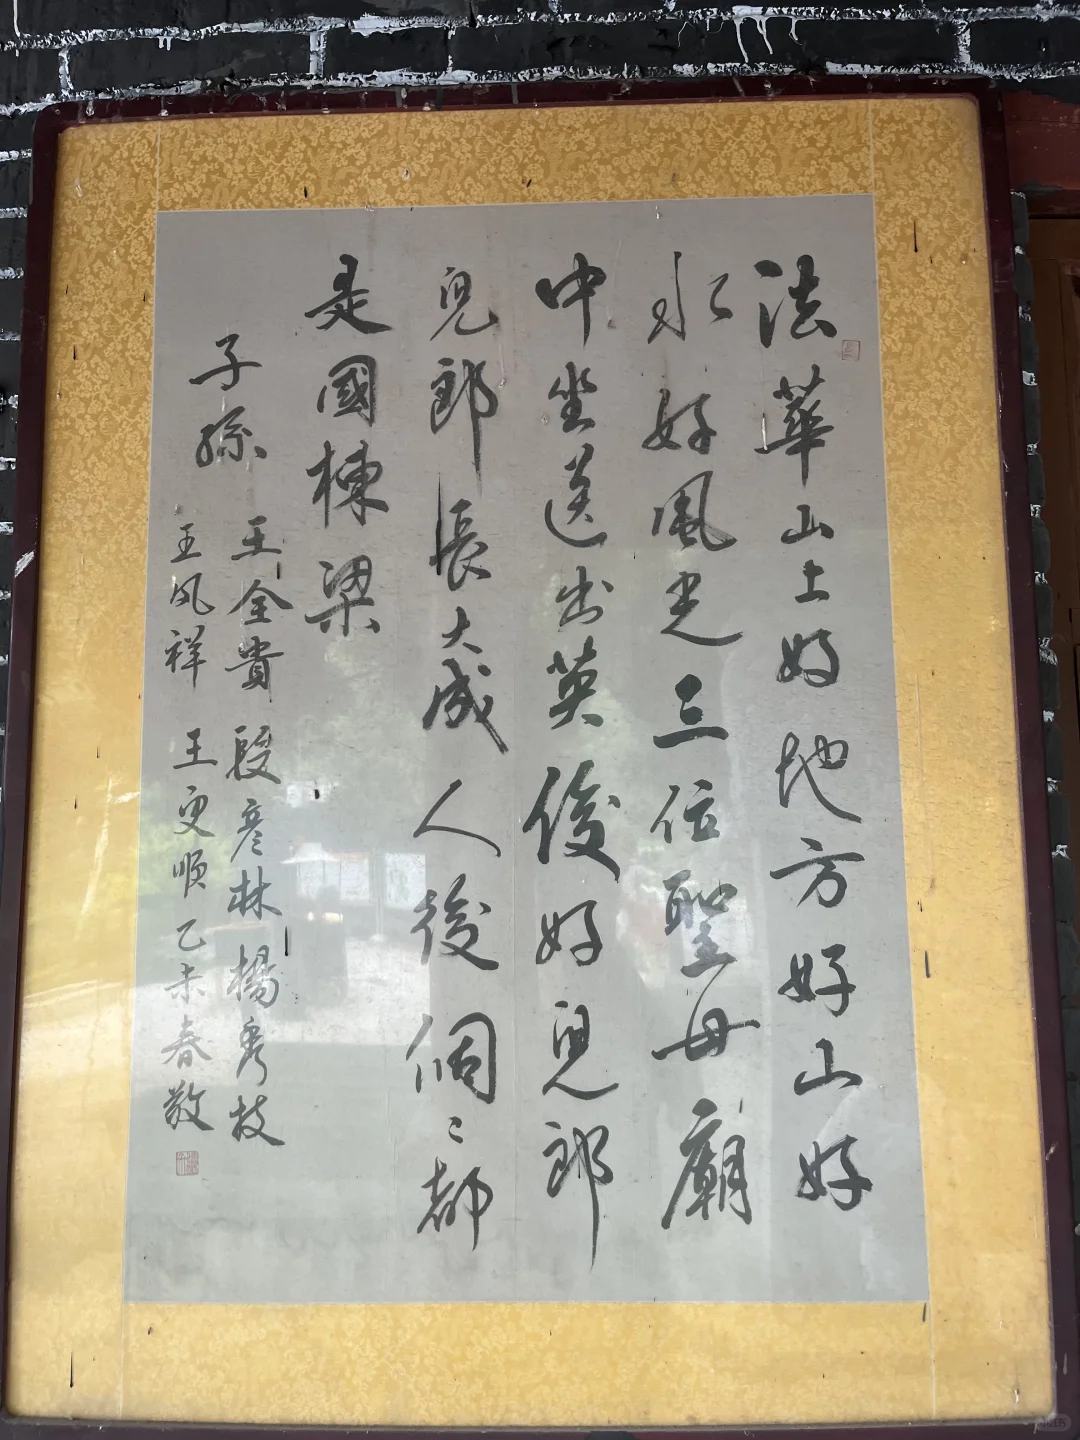 法華山土好地方好山好
水好風光三位聖母廟
中坐送出英俊好兒郎
兒郎長大成人後個〻都
是國棟梁
子孫
王全貴 段彥林 楊秀枝
王風祥 王更順 乙未春敬